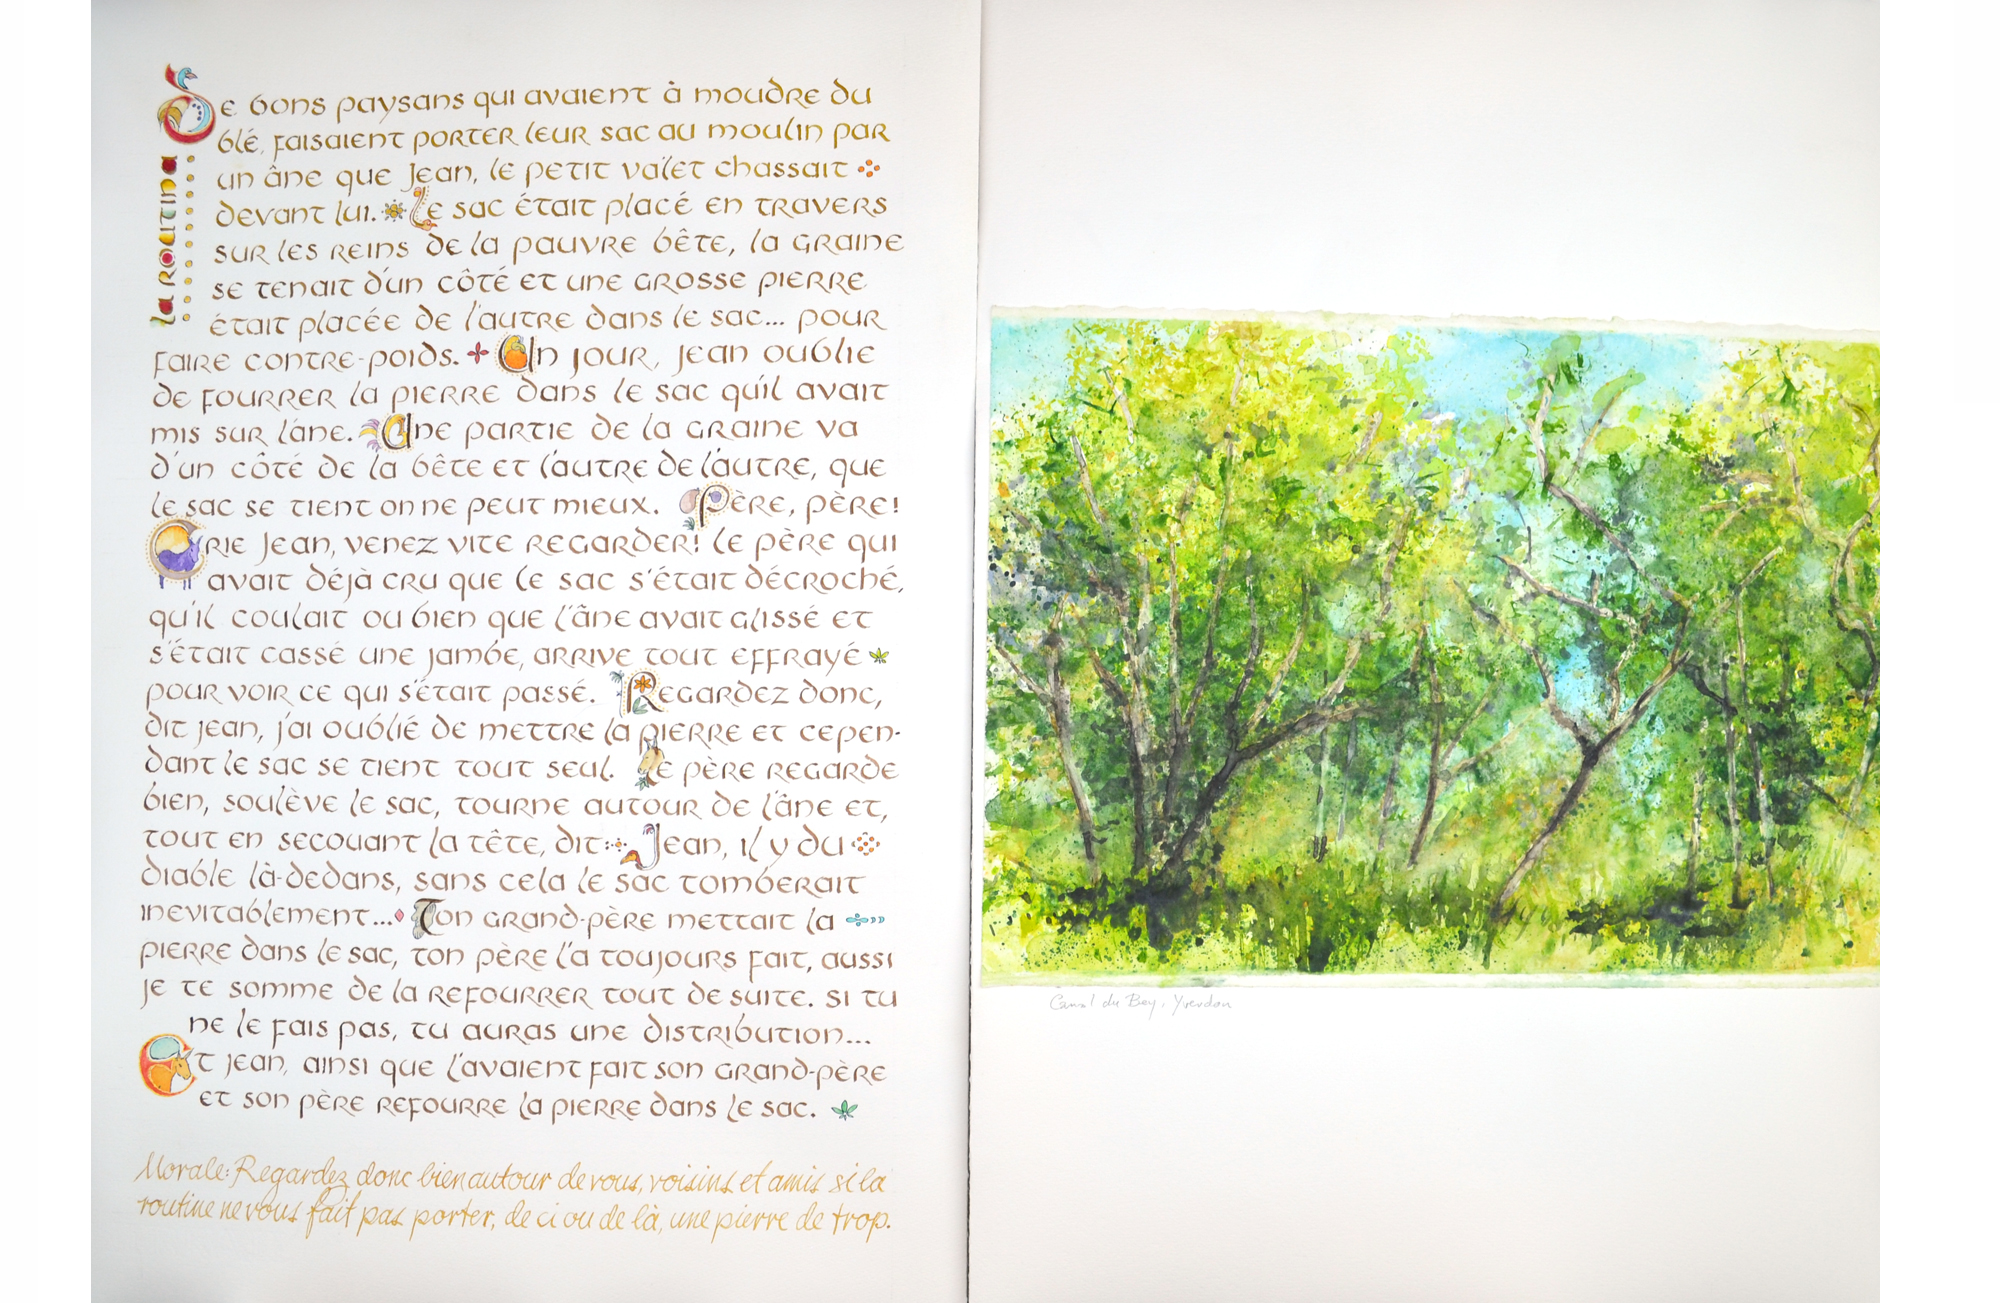 la routina
De bons paysans qui avaient à moudre du
blé, faisaient porter leur sac au moulin par
un âne que Jean, le petit valet chassait
devant lui. Le sac était placé en travers
sur les reins de la pauvre bête, la graine
se tenait d'un côté et une grosse pierre
était placée de l'autre dans le sac... pour
faire contre-poids. Un jour, Jean oublie
de fourrer la pierre dans le sac qu'il avait
mis sur l'âne. Une partie de la graine va
d'un côté de la bête et l'autre de l'autre, que
le sac se tient on ne peut mieux. Père, père!
Crie Jean, venez vite regarder! Le père qui
avait déjà cru que le sac s'était décroché,
qu'il coulait ou bien que l'âne avait glissé et
s'était cassé une jambe, arrive tout effrayé
pour voir ce qui s'était passé. Regardez donc,
dit Jean, j'ai oublié de mettre la pierre et cepen-
dant le sac se tient tout seul. Le père regarde
bien, soulève le sac, tourne autour de l'âne et,
tout en secouant la tête, dit: Jean, il y du
diable là-dedans, sans cela le sac tomberait
inevitablement... Ton grand-père mettait la
pierre dans le sac, ton père l'a toujours fait, aussi
je te somme de la refourrer tout de suite. Si tu
ne le fais pas, tu auras une distribution...
Et Jean, ainsi que l'avaient fait son grand-père
et son père refourre la pierre dans le sac.
Morale: Regardez donc bien autour de vous, voisins et amis si la
routine ne vous fait pas porter, de ci ou de là, une pierre de trop.
Canal du Bey, Yverdon